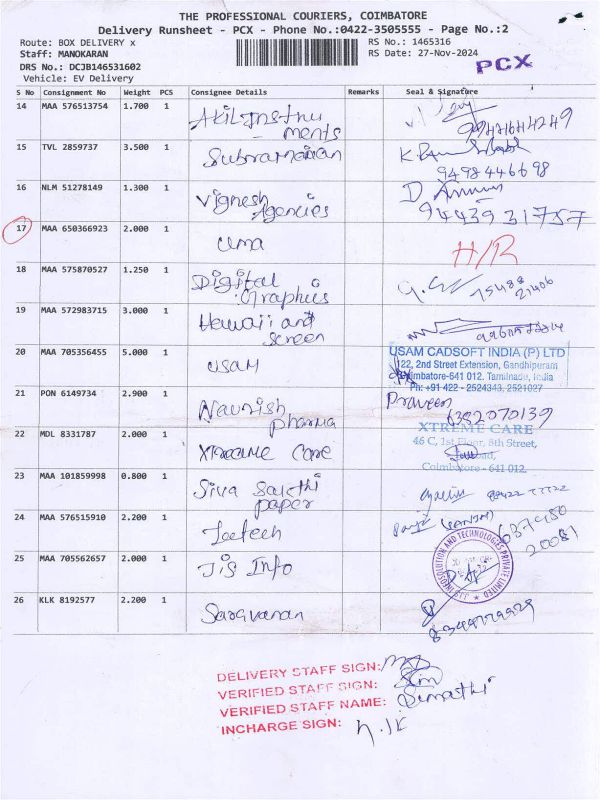 THE PROFESSIONAL COURIERS, COIMBATORE
Delivery Runsheet - PCX - Phone No.:0422-3505555 - Page No.:2
Route: BOX DELIVERY x
Staff: MANOKARAN
DRS No.: DCJB146531602
Vehicle: EV Delivery
RS No.: 1465316
RS Date: 27-Nov-2024
PCX
S No Consignment No Weight PCS Consignee Details Remarks Seal & Signature
14 MAA 576513754 1.700 1 Akil Instru
ments
15 TVL 2859737 3.500 1 Subramanian
9498446698
16 NLM 51278149 1.300 1 Vignesh
Agencies
94439 31757
17 MAA 650366923 2.000 1 Uma H/R
18 MAA 575870527 1.250 1 Digital
Graphics
75488
21406
19 MAA 572983715 3.000 1 Hawaii and
screen
20 MAA 705356455 5.000 1 USAM
USAM CADSOFT INDIA (P) LTD
122, 2nd Street Extension, Gandhipuram
Coimbatore-641 012. Tamilnadu, India
Ph: +91 422 - 2524343, 2521027
21 PON 6149734 2.900 1 Naurish
pharma
Praveen
6382070139
22 MDL 8331787 2.000 1 Xtreame Care
XTREME CARE
46 C, 1st Floor, 8th Street,
Coimbatore - 641 012.
23 MAA 101859998 0.800 1 Siva Sakthi
paper
24 MAA 576515910 2.200 1 Jeetech
637950
20081
25 MAA 705562657 2.000 1 Jis Info
26 KLK 8192577 2.200 1 Saravanan
DELIVERY STAFF SIGN:
VERIFIED STAFF SIGN:
VERIFIED STAFF NAME: Dimathi
INCHARGE SIGN: